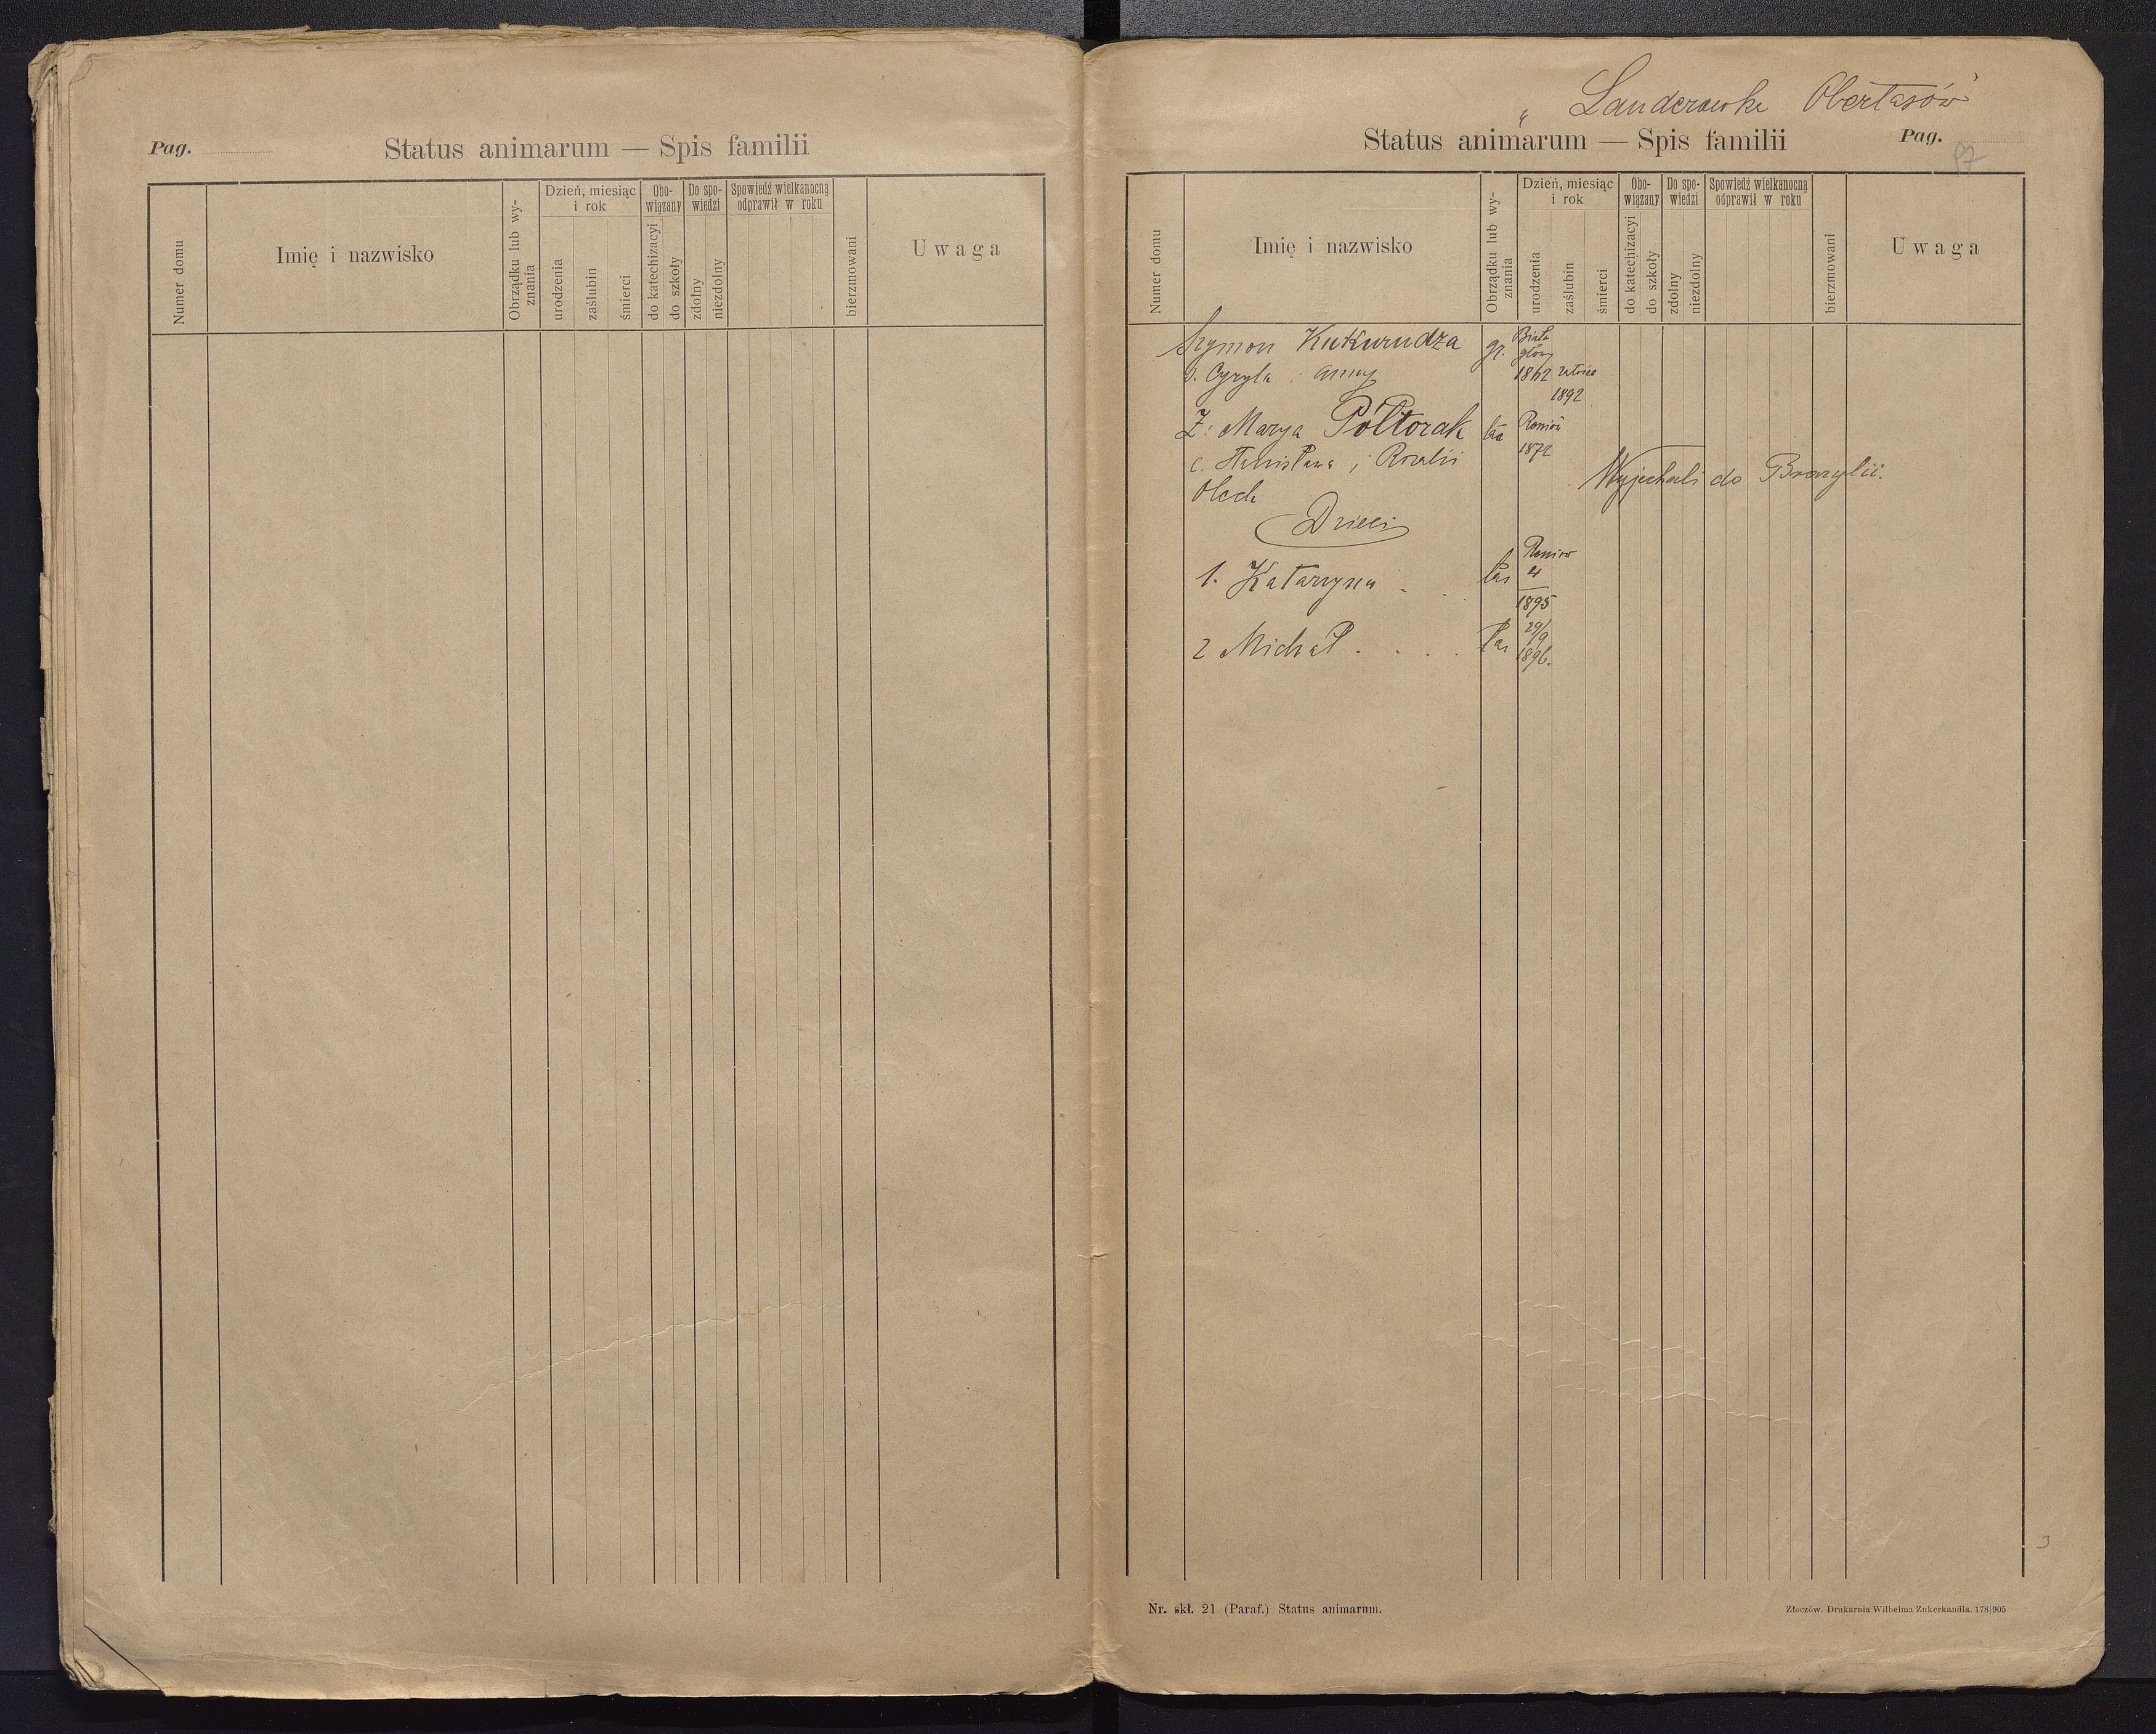 Pag.
Status animarum — Spis familii
Numer domu
Imię i nazwisko
Obrządku lub wy-
znania
Dzień, miesiąc
i rok
urodzenia
zaślubin
śmierci
Obo-
wiązany
do katechizacyi
do szkoły
Do spo-
wiedzi
zdolny
niezdolny
Spowiedź wielkanocną
odprawił w roku
bierzmowani
Uwaga
Obertasów"
Status animarum — Spis familii
Pag.
87
Numer domu
Imię i nazwisko
Obrządku lub wy-
znania
Dzień, miesiąc
i rok
urodzenia
zaślubin
śmierci
Obo-
wiązany
do katechizacyi
do szkoły
Do spo-
wiedzi
zdolny
niezdolny
Spowiedź wielkanocną
odprawił w roku
bierzmowani
Uwaga
Szymon Kukurudza gr. Biała
głowy
s. Cyryla i Anny 1862
1892
Ż: Marya Półtorak łac Reniów
1872
c. Stanisława i Rozalii
Olech
Wyjechali do Brazylii.
Dzieci
1. Katarzyna . . łac Reniów
4
1895
2 Michał . . . . łac 29/9
1896.
Nr. skł. 21 (Paraf.) Status animarum.
Złoczów. Drukarnia Wilhelma Zukerkandla. 178|905